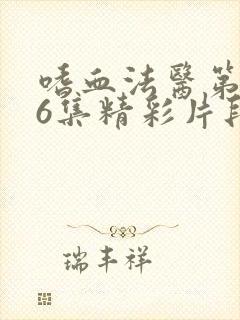 嗜血法醫第
6集精彩片段
瑞丰祥